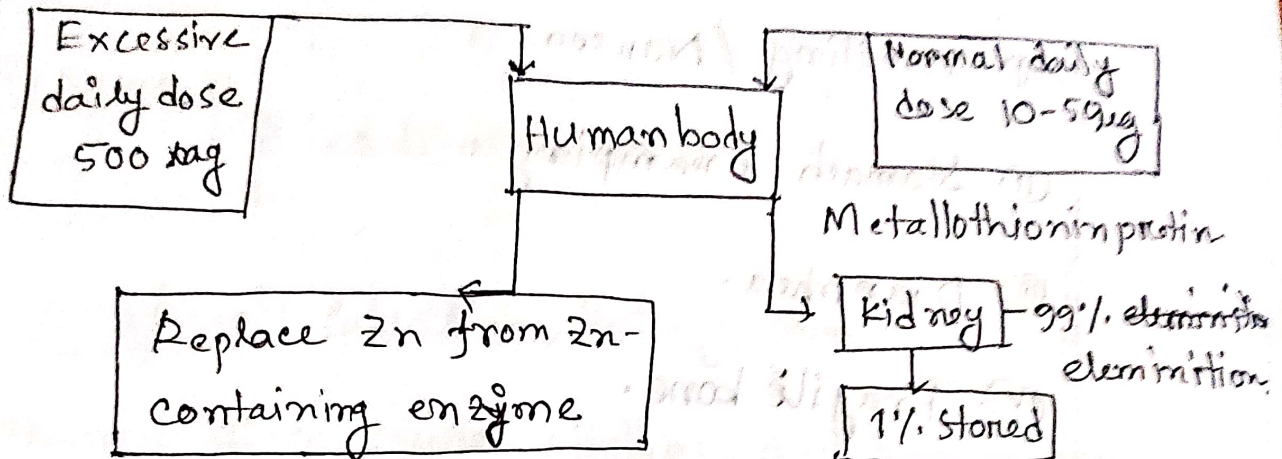 Excessive
daily dose
500 mg
Human body
Normal daily
dose 10-50µg
Metallothionin protin
Replace Zn from Zn-
containing enzyme
Kidney - 99%.
eleminition
1%. Stored